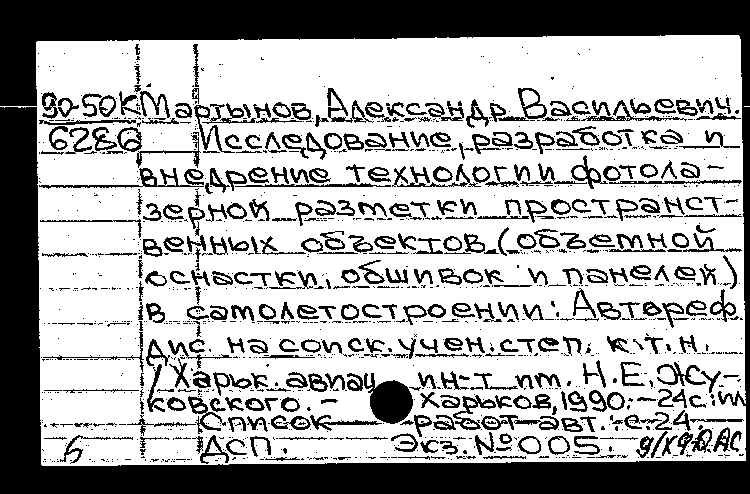 90-50К Мартынов, Александр Васильевич.
6286 Исследование, разработка и
внедрение технологии фотола-
зерной разметки пространст-
венных объектов (объемной
оснастки, обшивок и панелей)
в самолетостроении: Автореф
дис. на соиск. учен. степ. к.т.н.
/ Харьк. авиац ин-т им. Н.Е. Жу-
ковского. - Харьков, 1990. - 24с.: ил
Список работ авт.: с. 24.
б ДСП. Экз. №005.